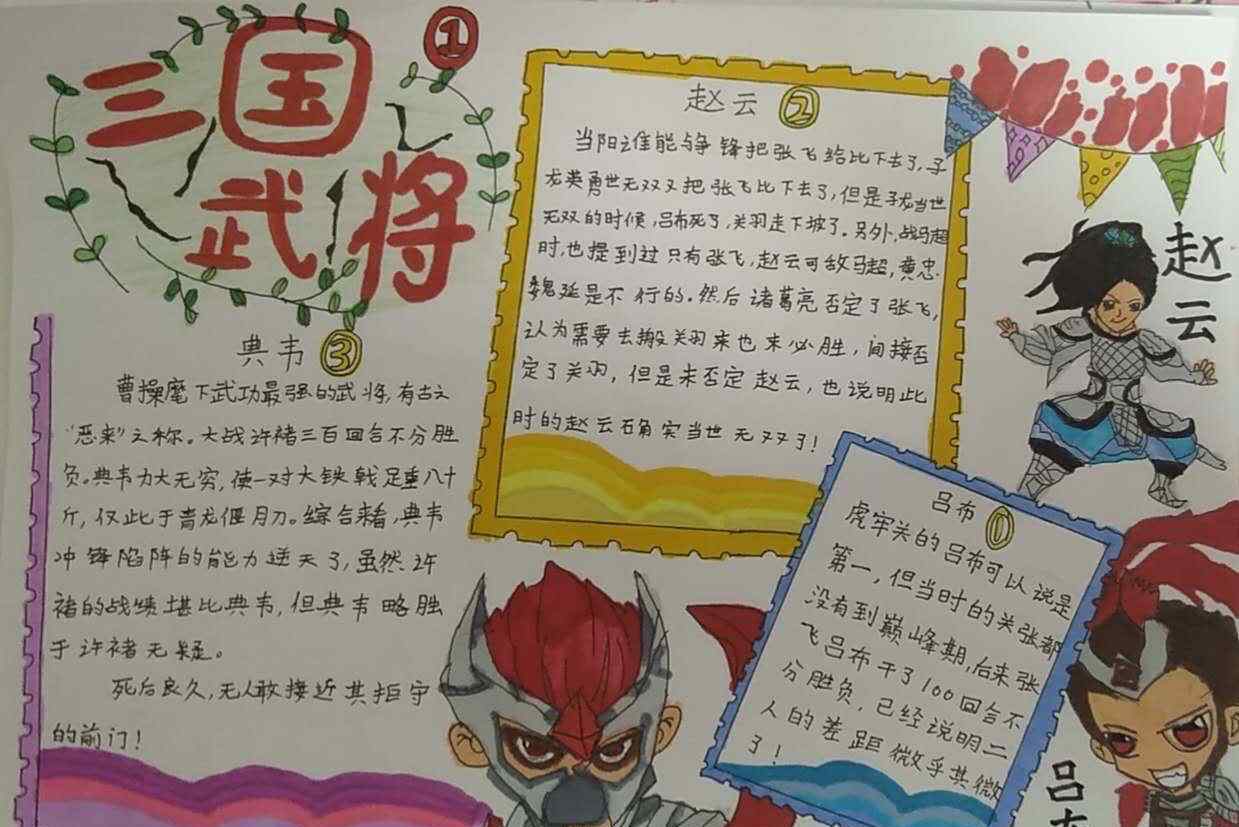 三国
武将
①
赵云 ②
当阳谁能与争锋把张飞给比下去了,子
龙英勇世无双又把张飞比下去了,但是子龙当世
无双的时候,吕布死了,关羽走下坡了。另外,战马超
时,也提到过只有张飞,赵云可敌马超,黄忠
魏延是不行的。然后诸葛亮否定了张飞,
认为需要去搬关羽来也未必胜,间接否
定了关羽,但是未否定赵云,也说明此
时的赵云确实当世无双了!
赵云
典韦 ③
曹操麾下武功最强的武将,有古之
“恶来”之称。大战许褚三百回合不分胜
负。典韦力大无穷,使一对大铁戟足重八十
斤,仅此于青龙偃月刀。综合来看,典韦
冲锋陷阵的能力逆天了,虽然许
褚的战绩堪比典韦,但典韦略胜
于许褚无疑。
死后良久,无人敢接近其拒守
的前门!
吕布 ①
虎牢关的吕布可以说是
第一,但当时的关张都
没有到巅峰期,后来张
飞吕布干了100回合不
分胜负,已经说明二
人的差距微乎其微
了!
吕布